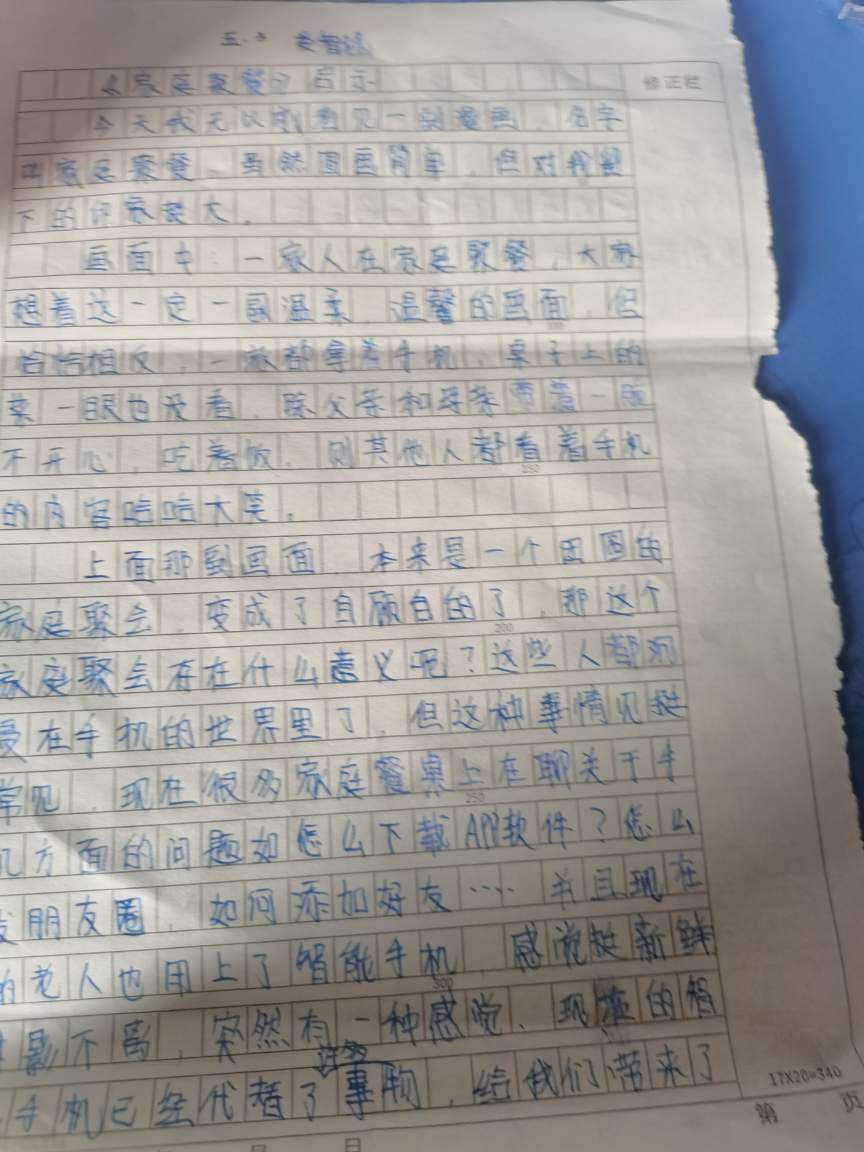 五.3
《家庭聚餐》启示
修正栏
今天我无以看见一副漫画，名字
叫家庭聚餐，虽然图画简单，但对我留
下的印象甚大。
画面中：一家人在家庭聚餐，大家
想着这一定一副温柔、温馨的画面，但
恰恰相反，一家都拿着手机，桌子上的
菜一眼也没看，除父亲和母亲带着一脸
不开心，吃着饭，则其他人都看着手机
的内容哈哈大笑。
上面那副画面 本来是一个团圆的
家庭聚会，变成了自顾自的了，那这个
家庭聚会存在什么意义呢？这些人都沉
浸在手机的世界里了，但这种事情见挺
常见，现在很多家庭餐桌上在聊关于手
机方面的问题如怎么下载APP软件？怎么
发朋友圈，如何添加好友…… 并且现在
的老人也用上了智能手机，感觉挺新鲜
影不离，突然有一种感觉，现在的智
手机已经代替了许多事物，给我们带来了
17X20=340
第 页
月 日